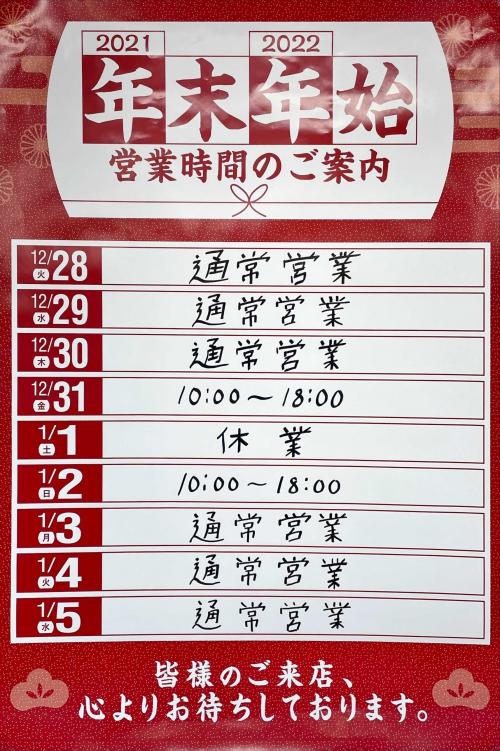 2021 2022
年末年始
営業時間のご案内
12/28 火 通常営業
12/29 水 通常営業
12/30 木 通常営業
12/31 金 10:00～18:00
1/1 土 休業
1/2 日 10:00～18:00
1/3 月 通常営業
1/4 火 通常営業
1/5 水 通常営業
皆様のご来店、
心よりお待ちしております。